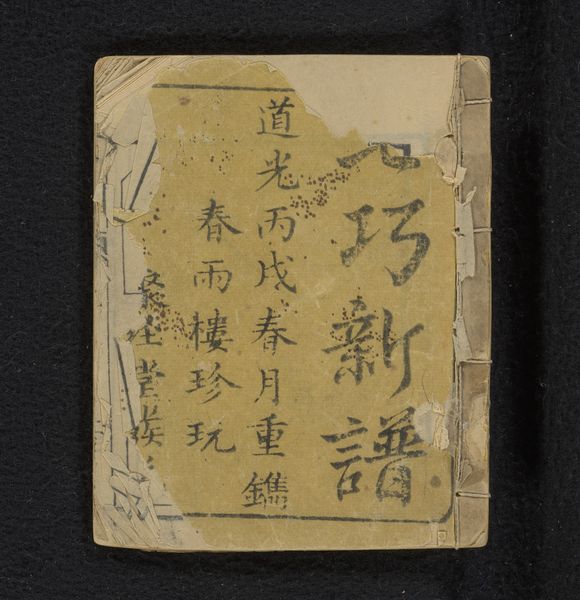 七巧新譜
道光丙戌春月重鐫
春雨樓珍玩
堂